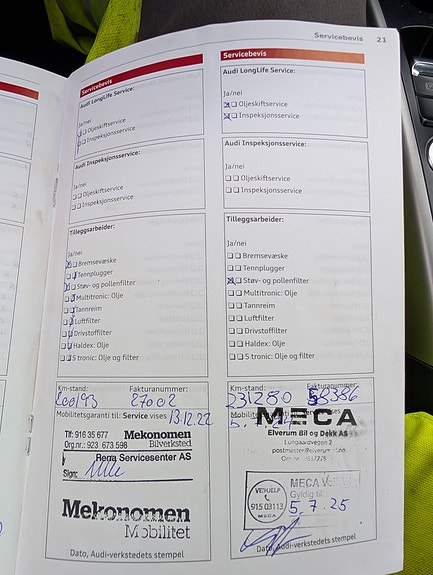 Servicebevis 21
Servicebevis
Audi LongLife Service:
Ja/nei
Oljeskiftservice
Inspeksjonsservice
Audi Inspeksjonsservice:
Ja/nei
Oljeskiftservice
Inspeksjonsservice
Tilleggsarbeider:
Ja/nei
Bremsevæske
Tennplugger
Støv- og pollenfilter
Multitronic: Olje
Tannreim
Luftfilter
Drivstoffilter
Haldex: Olje
S tronic: Olje og filter
Km-stand: Fakturanummer:
200193 27002
Mobilitetsgaranti til: Service vises 13.12.22
Tlf: 916 35 677 Mekonomen
Org.nr.: 923 673 598 Bilverksted
Rema Servicesenter AS
Sign:
Mekonomen
Mobilitet
Dato, Audi-verkstedets stempel
Servicebevis
Audi LongLife Service:
Ja/nei
Oljeskiftservice
Inspeksjonsservice
Audi Inspeksjonsservice:
Ja/nei
Oljeskiftservice
Inspeksjonsservice
Tilleggsarbeider:
Ja/nei
Bremsevæske
Tennplugger
Støv- og pollenfilter
Multitronic: Olje
Tannreim
Luftfilter
Drivstoffilter
Haldex: Olje
S tronic: Olje og filter
Km-stand: Fakturanummer:
231280 58386
MECA
Elverum Bil og Dekk AS
Lungaardvegen 2
VEIHJELP
915 03113
MECA
MECA
Gyldig til:
5.7.25
Dato, Audi-verkstedets stempel